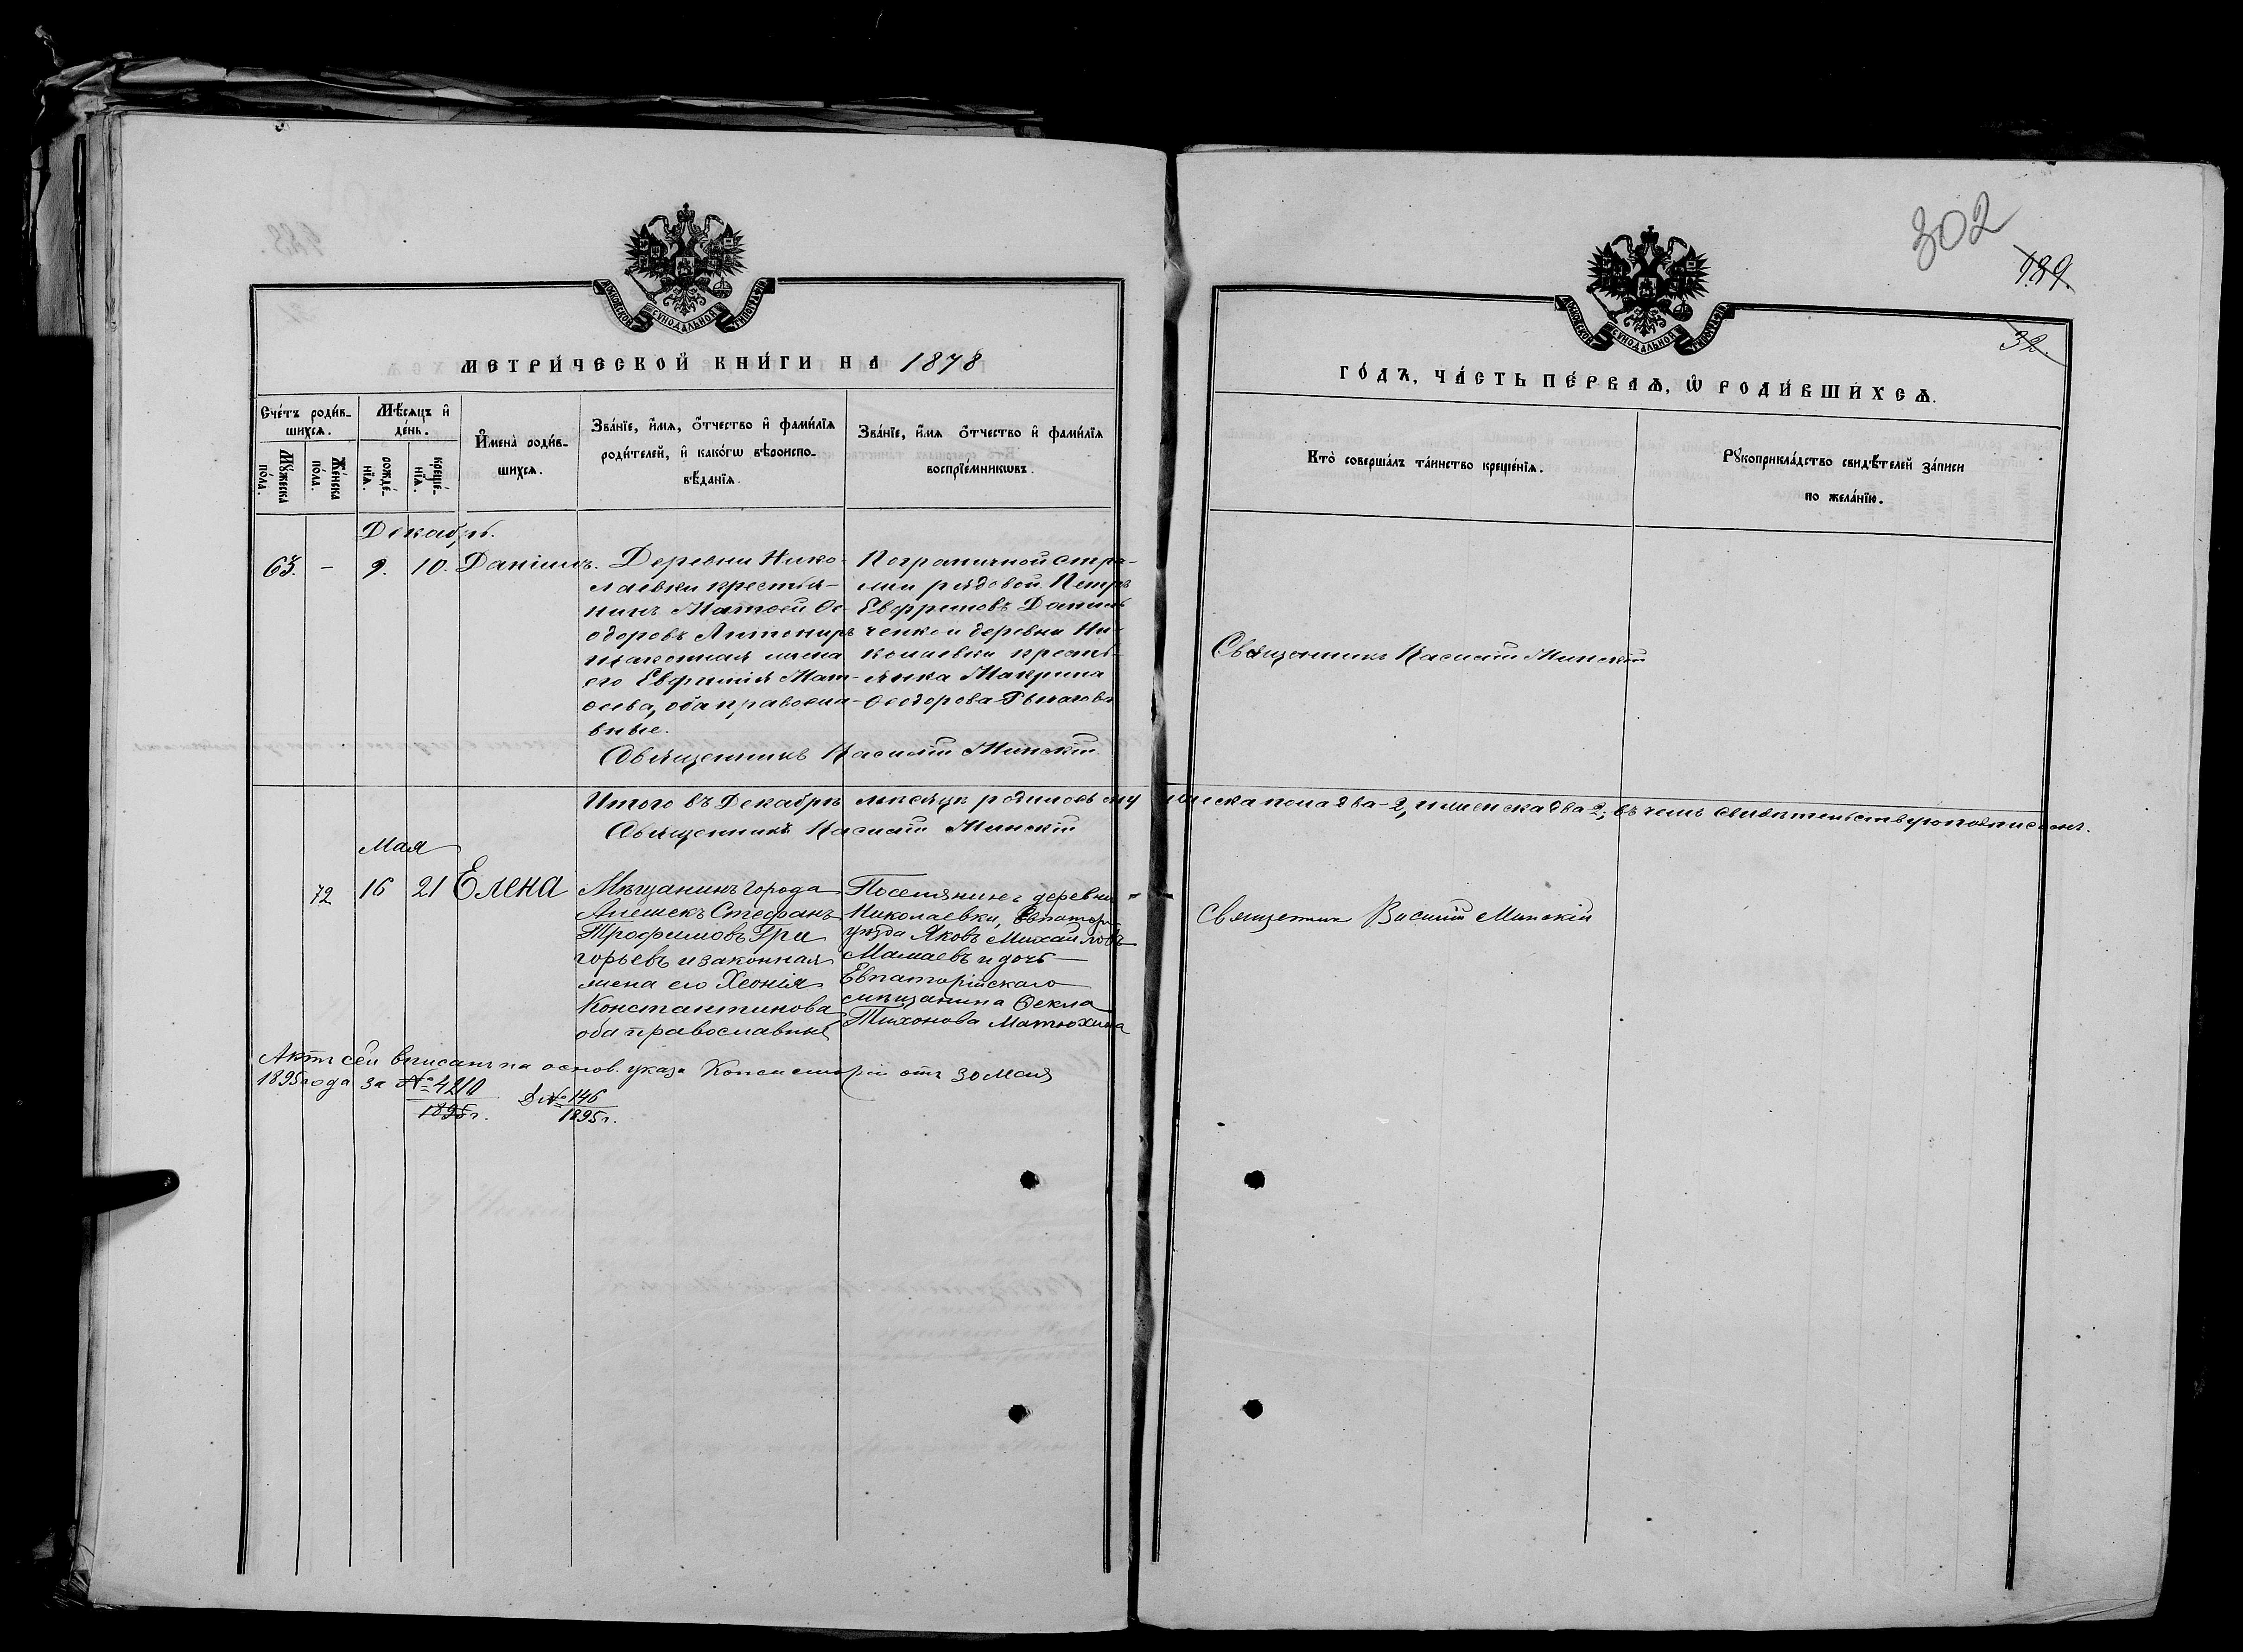 302
189.
32.
МОСКОВСКОЙ СѴНОДАЛЬНОЙ ТИПОГРАФІИ
МОСКОВСКОЙ СѴНОДАЛЬНОЙ ТИПОГРАФІИ
МЕТРИ́ЧЕСКОЙ КНИ́ГИ НА 1878
ГО́ДЪ, ЧА́СТЬ ПЕ́РВАѦ, Ѡ҆ РОДИ́ВШИХСѦ.
Сче́тъ роди́в-
шихсѧ.
Мꙋ́жеска
по́ла.
Же́нска
по́ла.
Мѣ́сѧцъ и҆
де́нь.
рожде́-
нїѧ.
креще́-
нїѧ.
И҆мена̀ роди́в-
шихсѧ.
Зва́нїе, и҆́мѧ, ѻ҆́тчество и҆ фами́лїѧ
роди́телей, и҆ како́гѡ вѣроиспо-
вѣ́данїѧ.
Зва́нїе, и҆́мѧ ѻ҆́тчество и҆ фами́лїѧ
воспрїе́мникѡвъ.
Кто̀ соверша́лъ та́инство креще́нїѧ.
Рꙋкоприкла́дство свидѣ́телей за́писи
по жела́нїю.
Декабрь.
63. – 9. 10. Даніилъ.
Деревни Нико-
лаевки крестья-
нинъ Матѳей Ѳе-
одоровъ
законная жена
его Евфимія Мат-
ѳеева, оба правосла-
вные.
Священникъ Василій Минскій.
Пограничной стра-
жи рядовой Петръ
Евфремовъ Данил-
ченко и деревни Ни-
колаевки кресть-
янка Макрина
Ѳеодорова
Священникъ Василій Минскій
Итого въ Декабрѣ мѣсяцѣ родилось мужеска пола два-2, и женска два-2; въ чемъ свидѣтельствую подписомъ.
Священникъ Василій Минскій
Мая
72 16 21 Елена
Мѣщанинъ города
Алешекъ Стефанъ
Трофимовъ Гри
горьевъ и законная
жена его Хеонія
Константинова
оба православные
Поселянинъ деревни
Николаевки, Евпатор.
уѣзда Яковъ Михайловъ
Мамаевъ и дочь
Евпаторійскаго
мѣщанина Ѳекла
Тихонова Матюхина
Священник Василій Минскій
Актъ сей вписанъ на основ. указа Консисторіи отъ 30 Мая
1895 года за № 4210
1895 г.
Д № 146
1895 г.